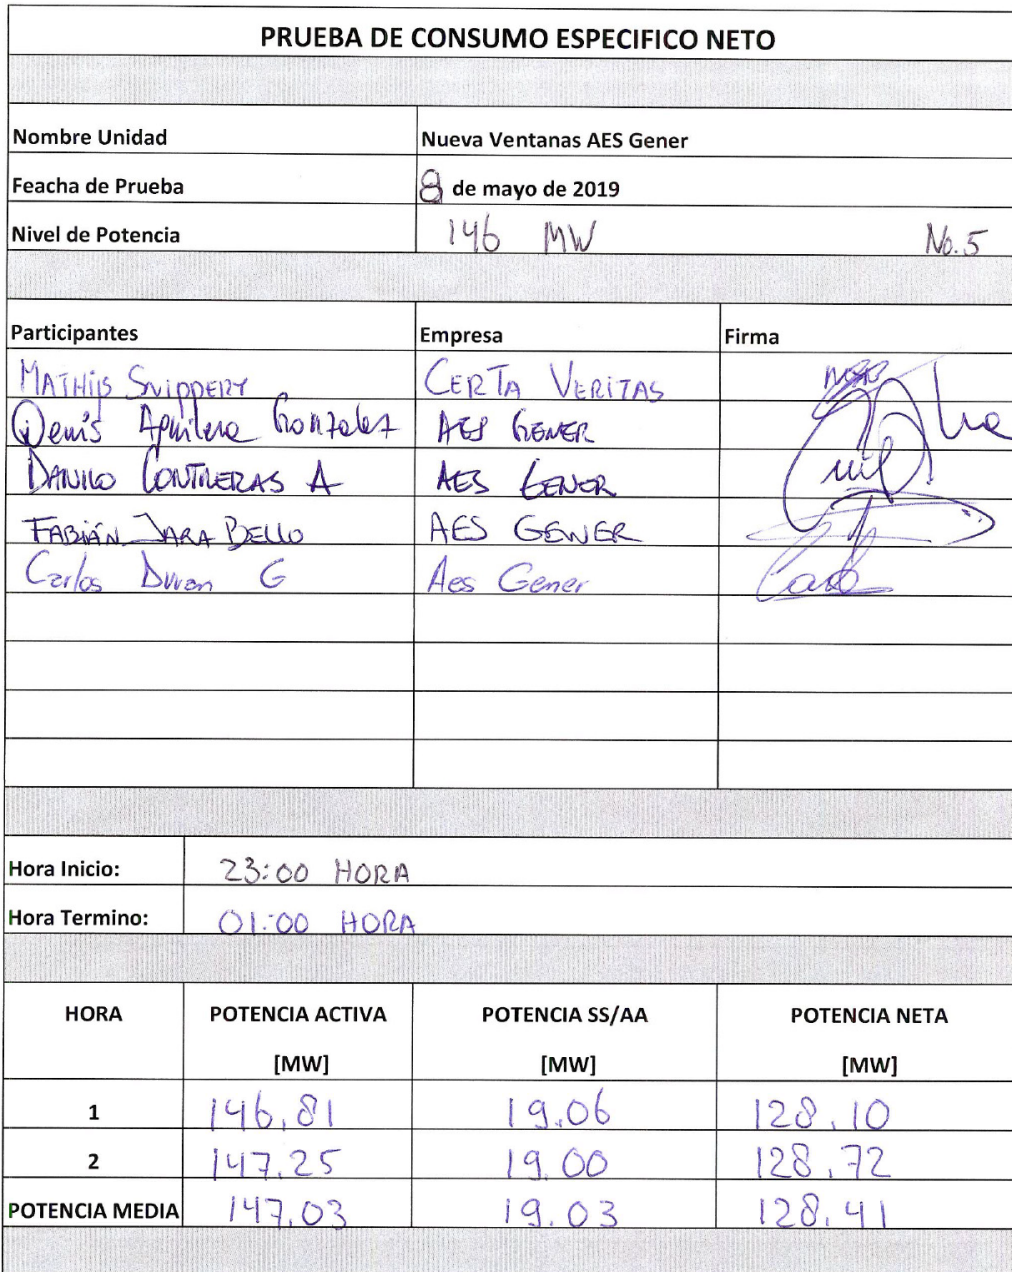 PRUEBA DE CONSUMO ESPECIFICO NETO
Nombre Unidad Nueva Ventanas AES Gener
Feacha de Prueba 8 de mayo de 2019
Nivel de Potencia 146 MW No.5
Participantes Empresa Firma
MATHIJS CERTA VERITAS
Denis Aguilera Gonzalez AES GENER
DANILO CONTRERAS A AES GENER
FABIÁN JARA BELLO AES GENER
Carlos Duran G Aes Gener
Hora Inicio: 23:00 HORA
Hora Termino: 01:00 HORA
HORA POTENCIA ACTIVA POTENCIA SS/AA POTENCIA NETA
[MW] [MW] [MW]
1 146,81 19.06 128.10
2 147.25 19.00 128.72
POTENCIA MEDIA 147,03 19.03 128,41